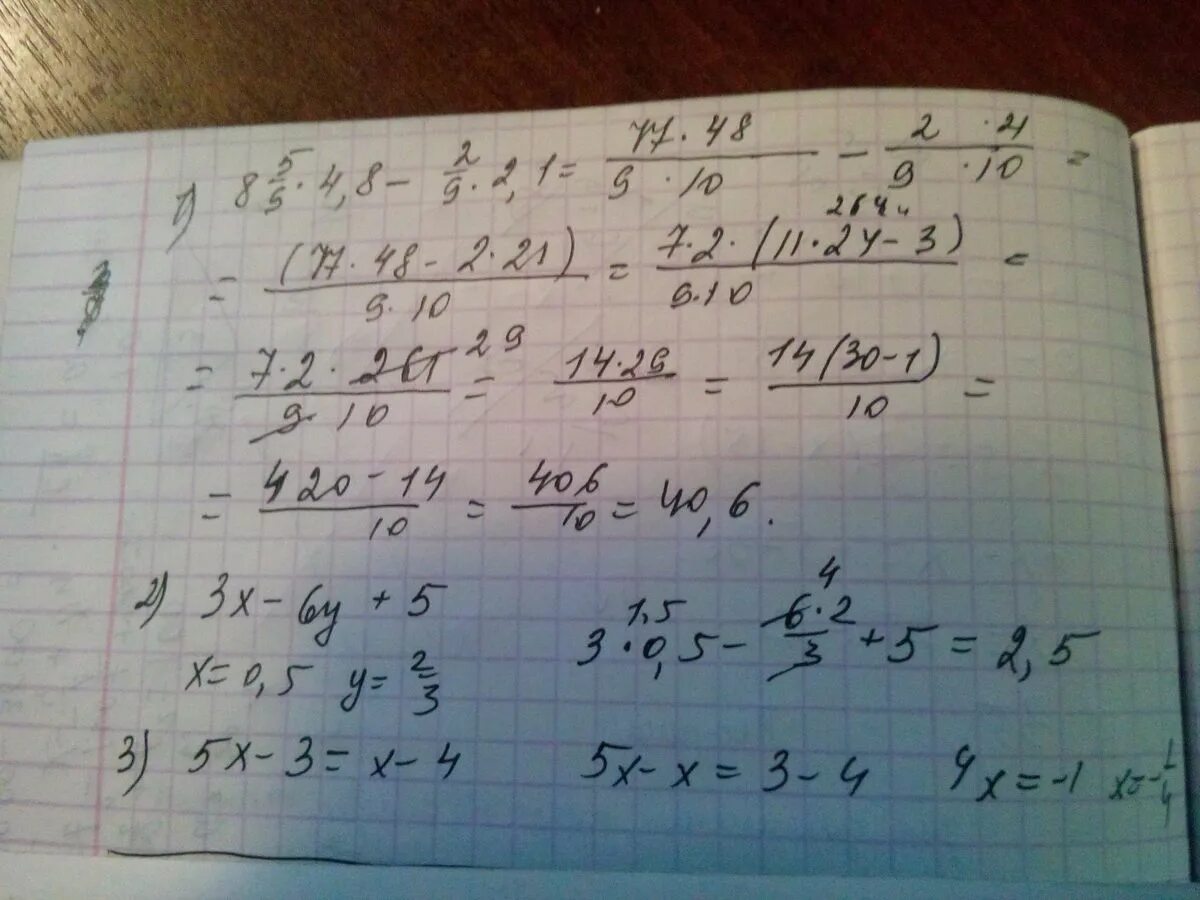 1) 8 5/9 · 4,8 - 2/9 · 2,1 = 77·48/9·10 - 2·21/9·10 =
= (77·48 - 2·21)/9·10 = 7·2·(11·24 - 3)/9·10 =
264
= 7·2·261/9·10 = 14·29/10 = 14(30-1)/10 =
29
= 420-14/10 = 406/10 = 40,6.
2) 3x - 6y + 5
x = 0,5 y = 2/3
1,5 4
3·0,5 - 6·2/3 + 5 = 2,5
3) 5x - 3 = x - 4 5x - x = 3 - 4 4x = -1 x = -1/4